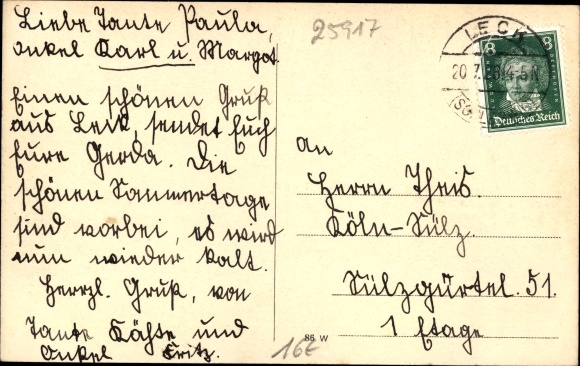 Liebe Tante Paula,
onkel Karl u. Margot.
Einen schönen Gruß
aus Leck, sendet Euch
Eure Gerda. Die
schönen Sommertage
sind vorbei, es wird
nun wieder kalt.
Herzl. Gruß, von
Tante Käthe und
Onkel Fritz.
25917
LECK
8 8
Deutsches Reich
an
Herrn Theis.
Köln-Sülz.
Sülzgürtel. 51.
1 Etage
86 W
16E